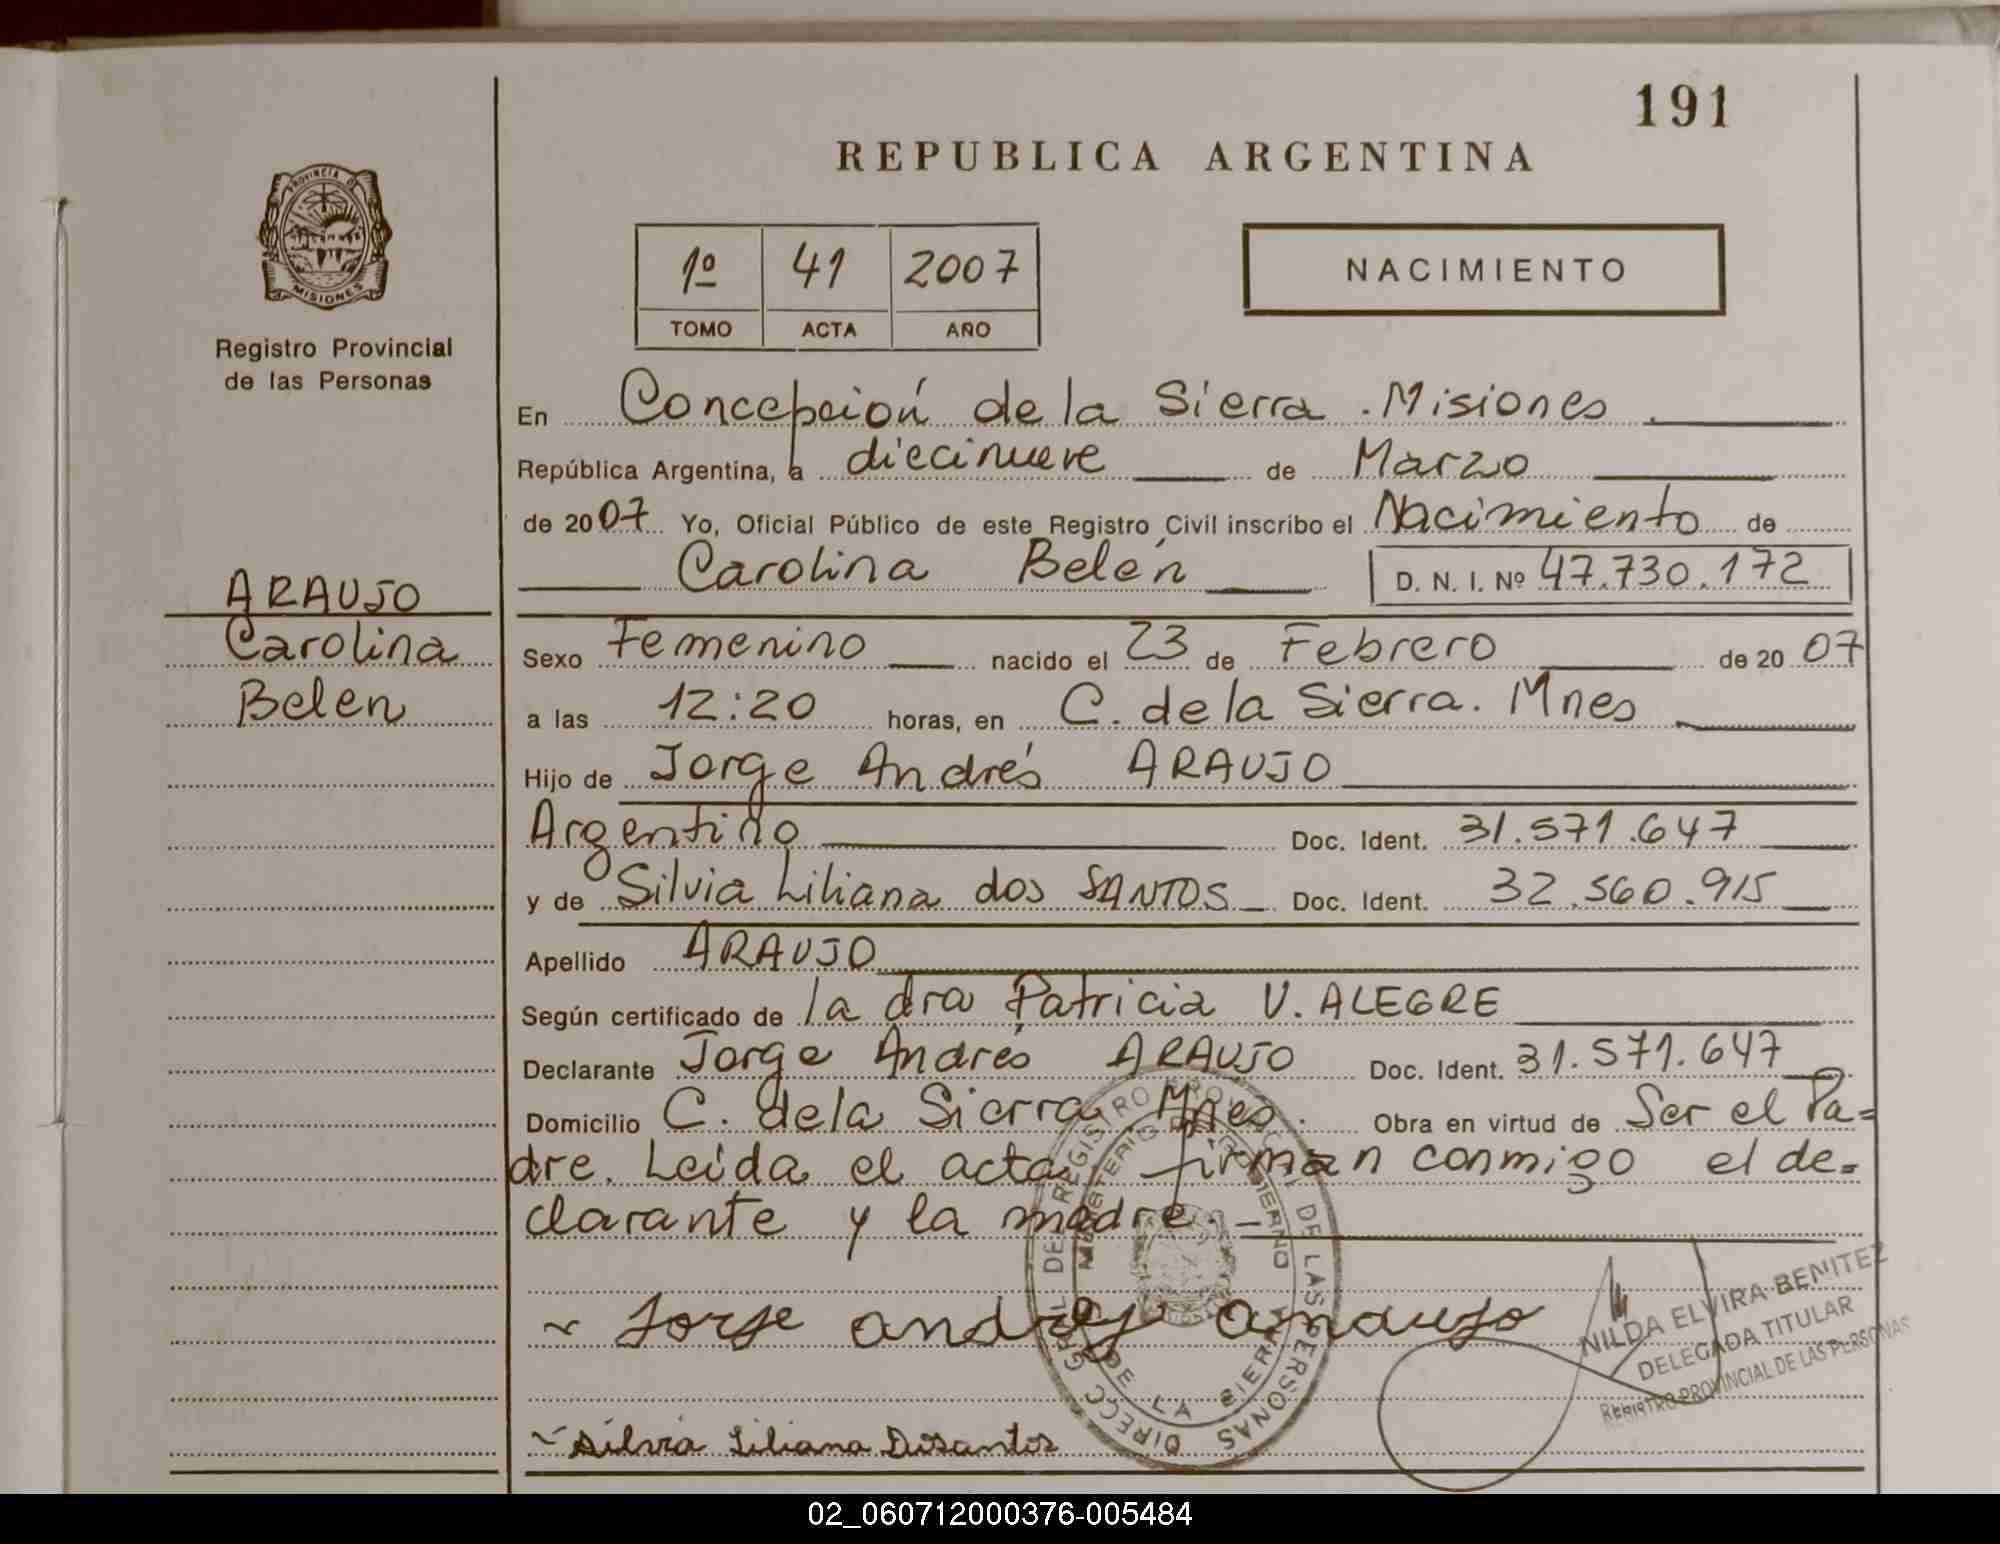 191
REPUBLICA ARGENTINA
PROVINCIA D
MISIONES
Registro Provincial
de las Personas
1º 41 2007
TOMO ACTA AÑO
NACIMIENTO
En Concepción de la Sierra . Misiones
República Argentina, a diecinueve de Marzo
de 2007 Yo, Oficial Público de este Registro Civil inscribo el Nacimiento de
Carolina Belén D. N. I. Nº 47.730.172
ARAUJO
Carolina
Belen
Sexo Femenino nacido el 23 de Febrero de 2007
a las 12:20 horas, en C. de la Sierra. Mnes
Hijo de Jorge Andrés ARAUJO
Argentino Doc. Ident. 31.571.647
y de Silvia Liliana dos SANTOS Doc. Ident. 32.560.915
Apellido ARAUJO
Según certificado de la dra Patricia V. ALEGRE
Declarante Jorge Andrés ARAUJO Doc. Ident. 31.571.647
Domicilio C. de la Sierra Mnes. Obra en virtud de Ser el Pa=
dre. Leida el acta, firman conmigo el de=
clarante y la madre.
Jorge andres araujo
silvia liliana Dosantos
DIRECC GRAL DEL REGISTRO PROVINCIAL DE LAS PERSONAS
MINISTERIO DE GOBIERNO
DE LA SIERRA
NILDA ELVIRA BENITEZ
DELEGADA TITULAR
REGISTRO PROVINCIAL DE LAS PERSONAS
02_060712000376-005484